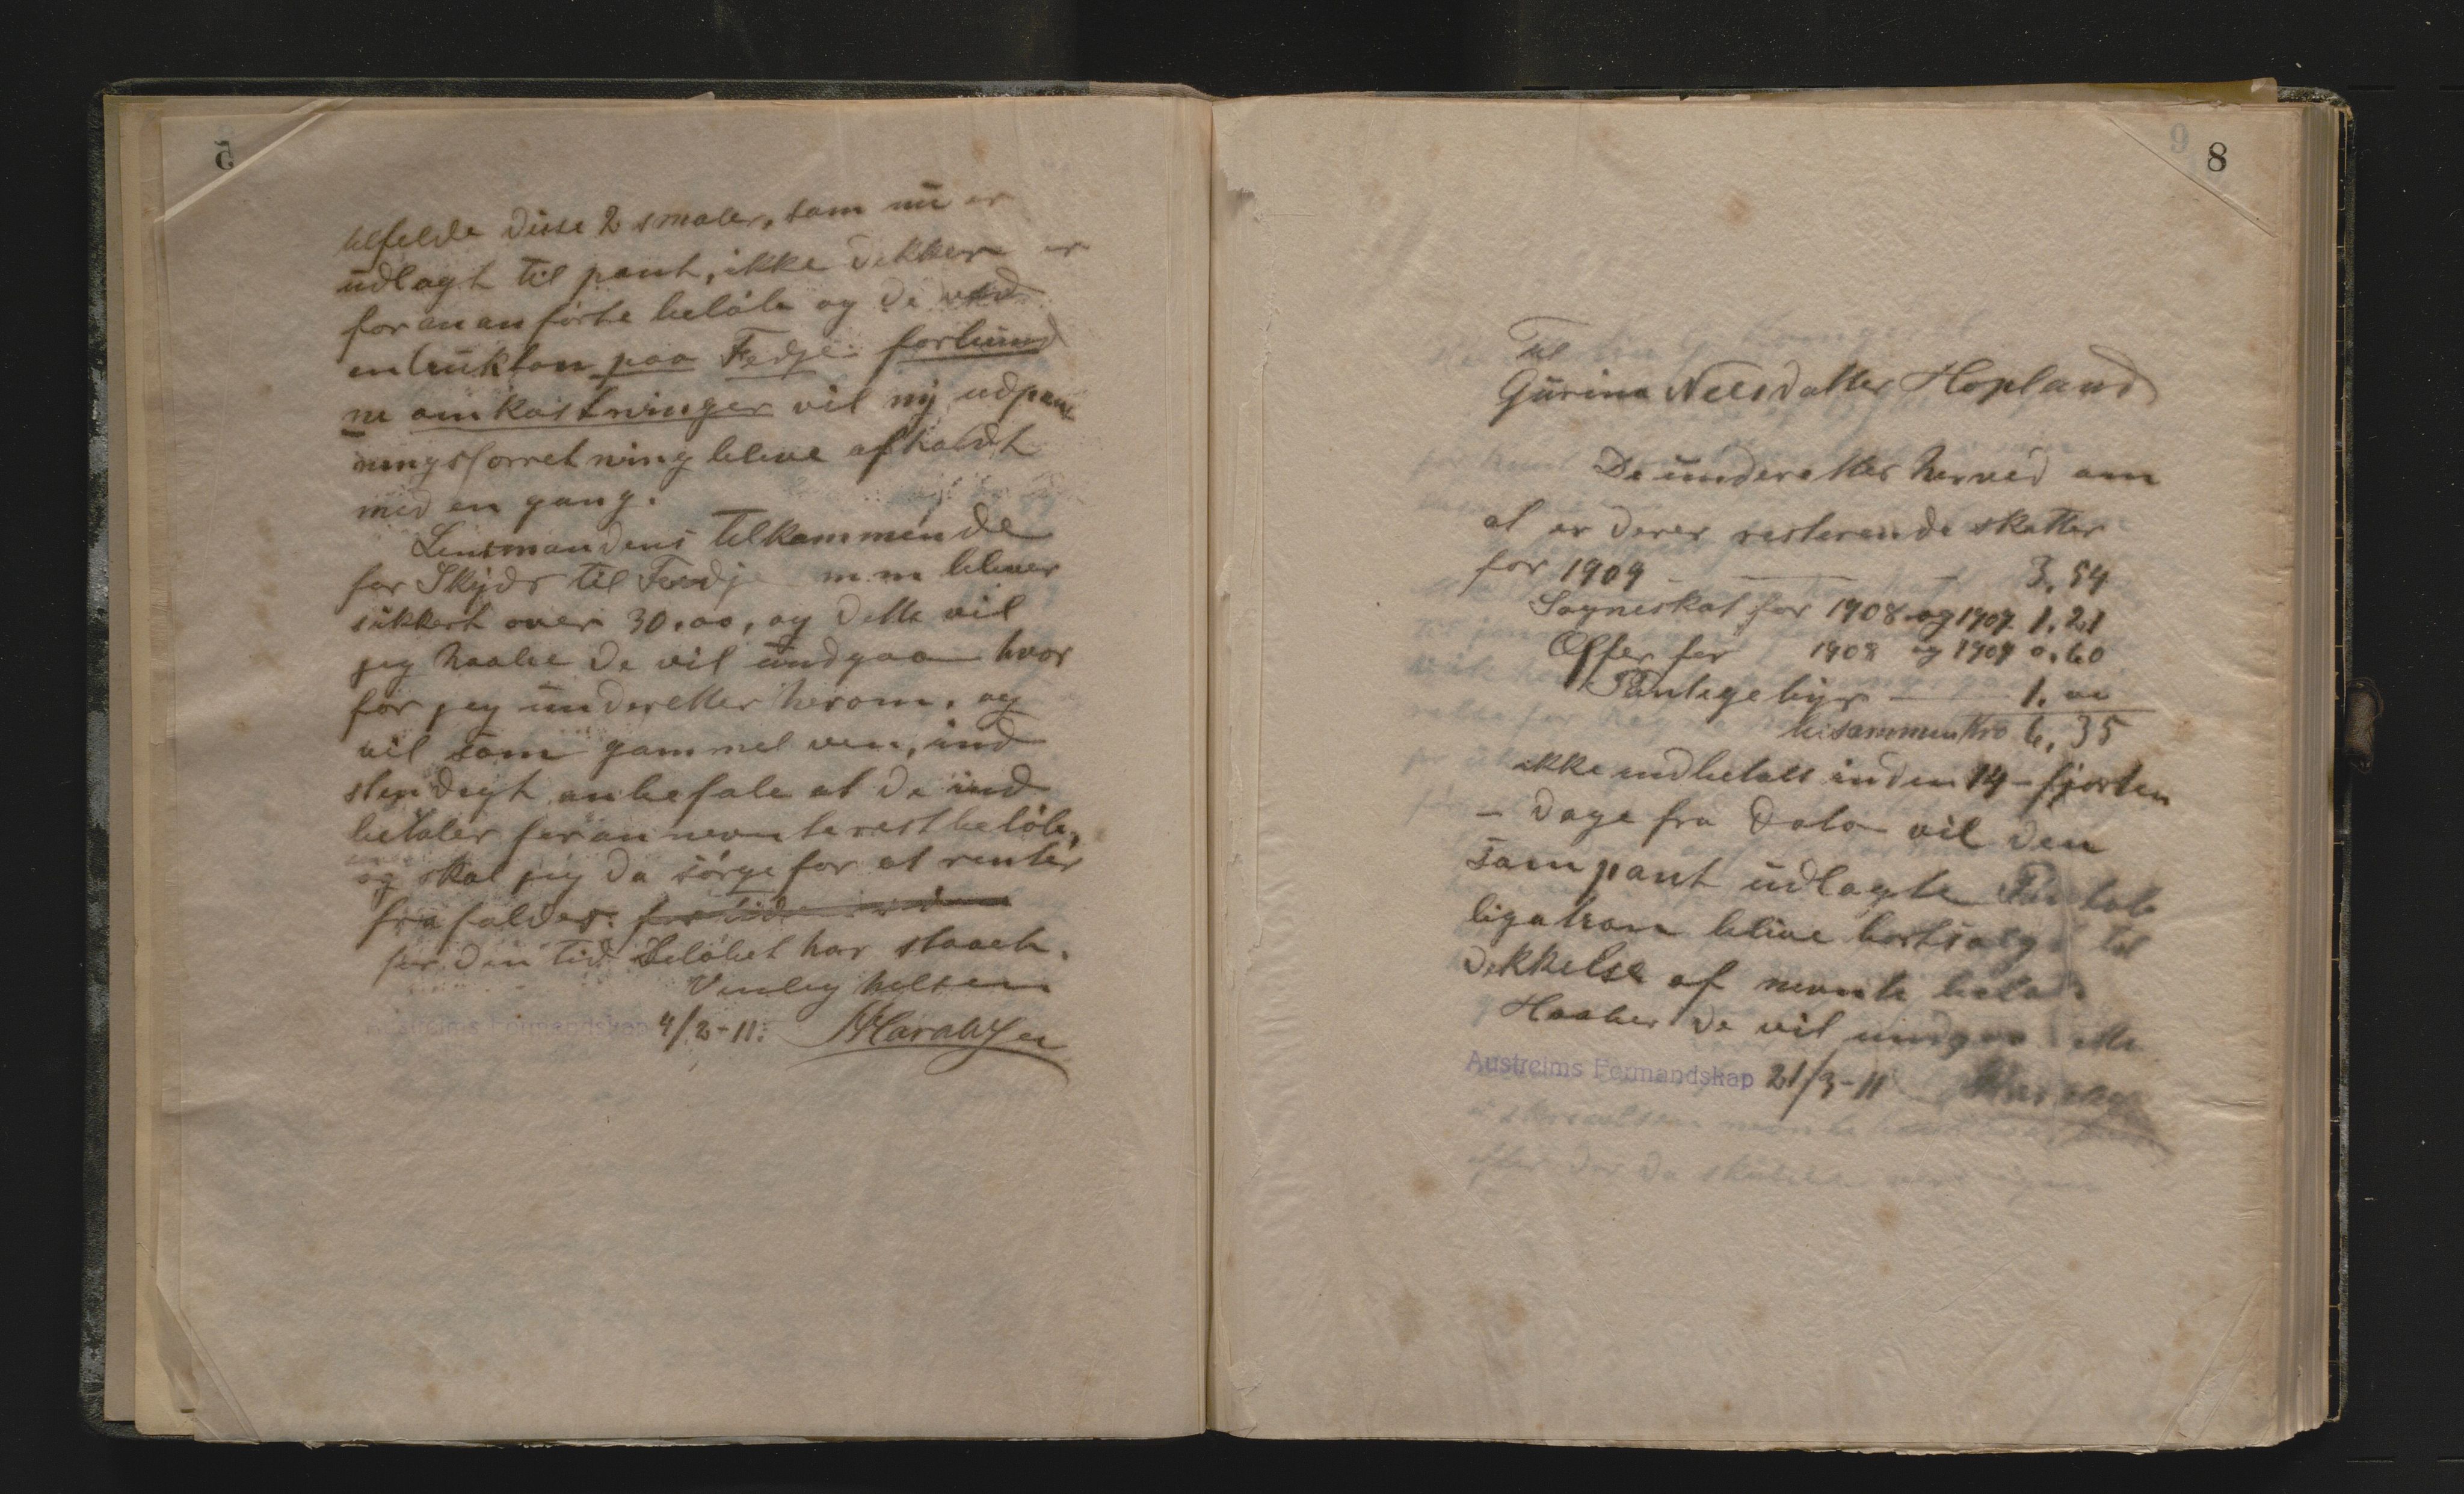 5
tilfelde disse 2 smaler, som nu er
udlagt til pant, ikke dekker er
foran anførte beløb og de ved
intrukson paa Fedje forbund
ne omkostninger vil ny udpant
ningsforretning bleve afholdt
med en gang.
Lensmandens tilkommende
for Skyds til Fedje m.m blever
sikkert over 30.00, og dette vil
jeg haabe De vil undgaa hvor
for jeg underetter herom, og
vil som gammel ven, ind
stendigt anbefale at De ind
betaler foran nevnte restbeløb,
og skal jeg da sørge for at renter
frafalder.
for den tid Beløbet har staaet.
Venlig helsen
Austreims Formandskap 4/2-11.
8
Til
Gurina Nelsdatter Hopland
De underettes herved om
at er deres resterende skatter
for 1909 - 3,54
Sogneskat for 1908 og 1909 1.21
Offer for 1908 og 1909 0.60
Pantegebyr 1.00
tilsammen Kro 6.35
ikke indbetalt inden 14 - fjorten
- dage fra Dato vil den
som pant udlagte Pantob
ligatson blive bortsolgt til
dekkelse af nevnte beløb.
Haaber De vil undgaa dette
Austreims Formandskap 21/3-11